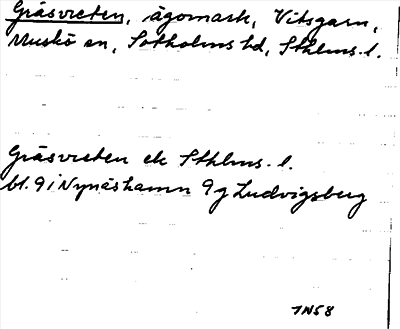 Gräsvreten, ägomark, Vitsgarn,
Muskö sn, Sotholms hd, Sthlms. l.
Gräsvreten ek Sthlms. l.
bl. 9 i Nynäshamn 9 g Ludvigsberg
7N58